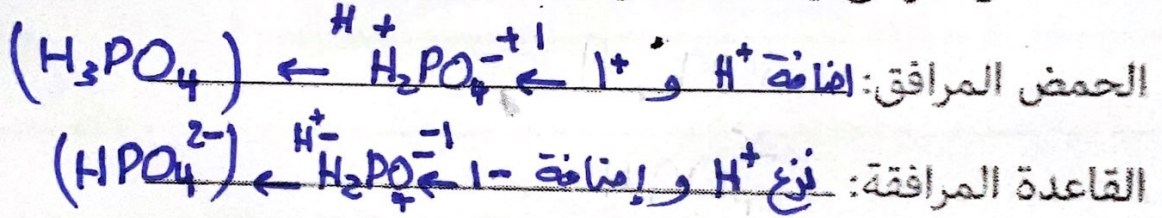 الحمض المرافق: اضافة H⁺ و 1+ ← H₂PO₄⁻ ⁺¹ H⁺ ← (H₃PO₄)
القاعدة المرافقة: نزع H⁺ و إضافة 1- ← H₂PO₄⁻ ⁻¹ H⁺⁻ ← (HPO₄²⁻)